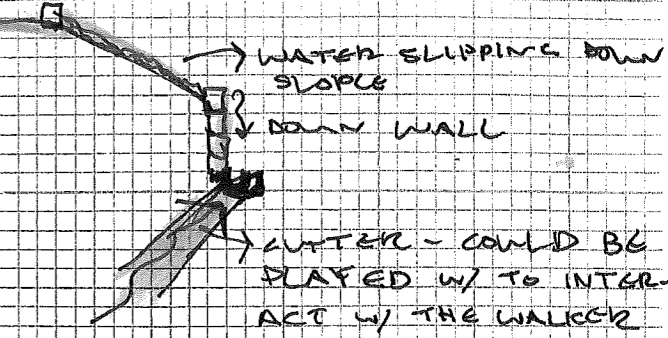 WATER SLIPPING DOWN
SLOPLE
DOWN WALL
GUTTER - COULD BE
PLAYED W/ TO INTER-
ACT W/ THE WALKER